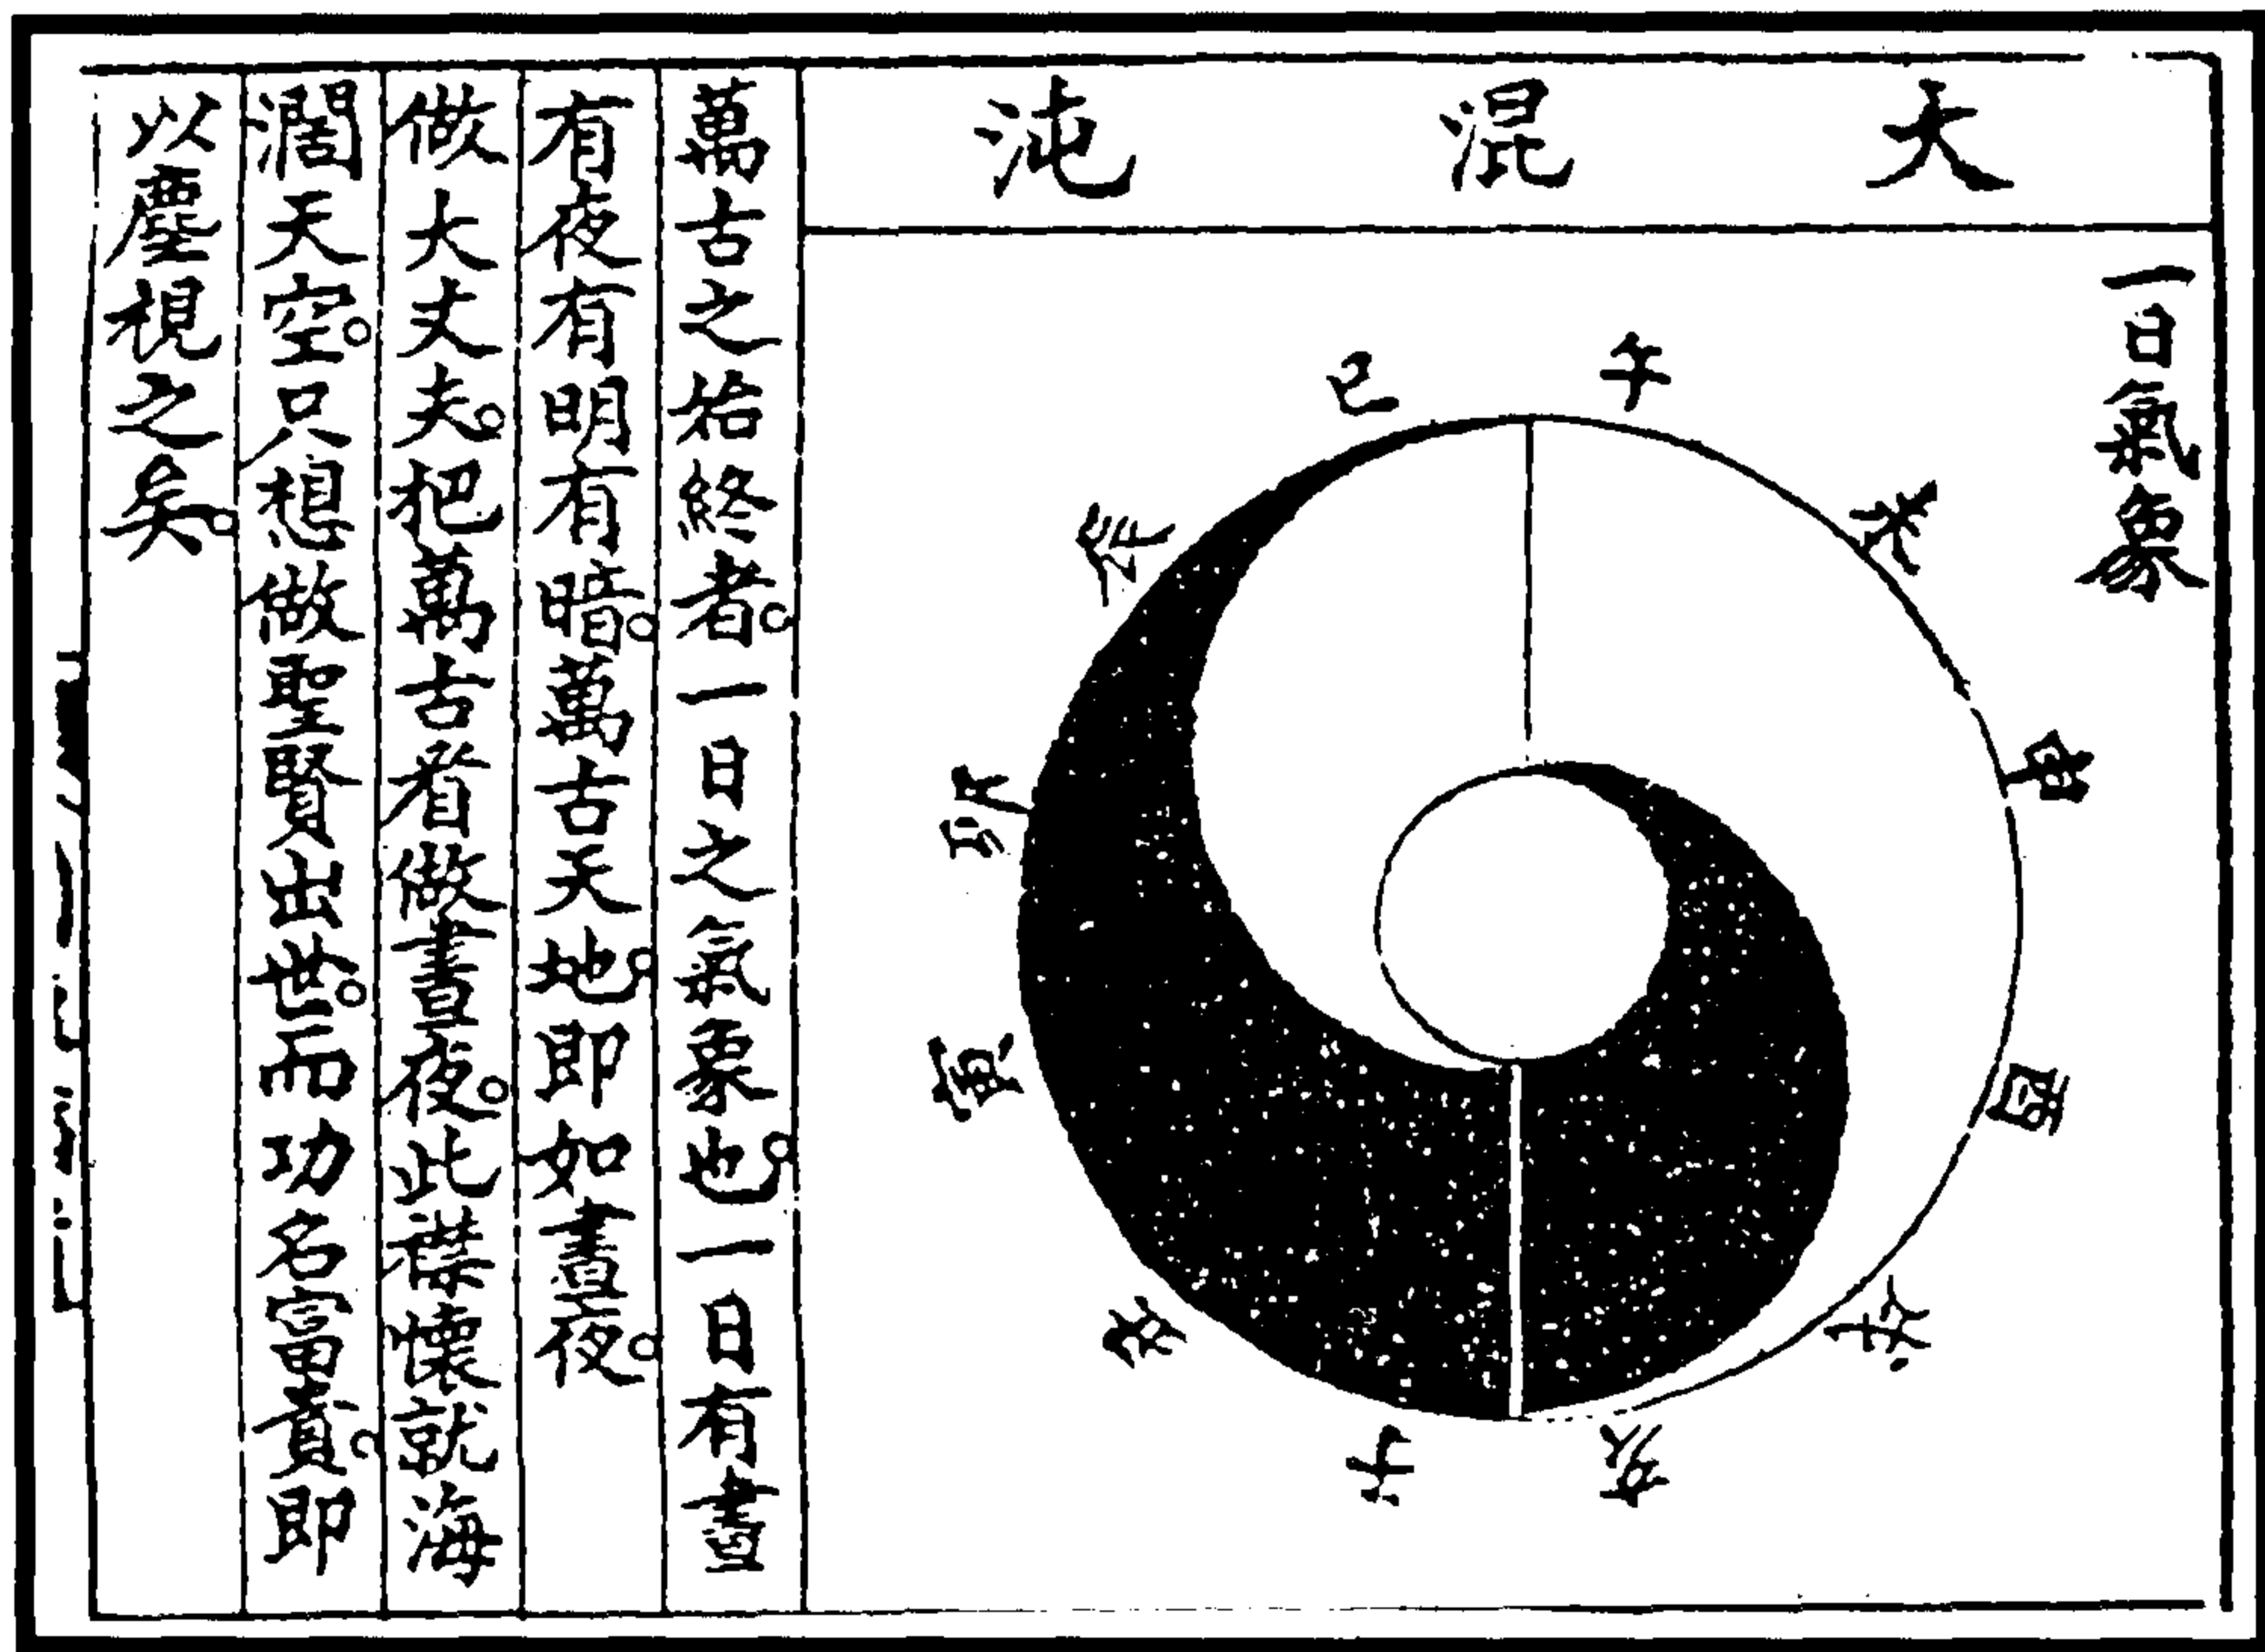 大混沌
一日氣象
午
未
申
酉
戌
亥
子
丑
寅
卯
辰
巳
萬古之始終者。一日之氣象也。一日有晝
有夜有明有暗。萬古天地。即如晝夜。
做大丈夫。把萬古看做晝夜。此襟懷就海
濶天空。只想做聖賢出世。而功名富貴。即
以塵視之矣。